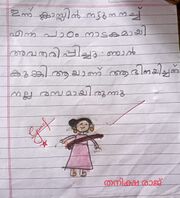 ഇന്ന് ക്ലാസ്സിൽ നട്ടുനനച്ച്
എന്ന പാഠം നാടകമായി
അവതരിപ്പിച്ചു. ഞാൻ
കുക്കി ആയാണ് അഭിനയിച്ചത്
നല്ല രസമായിരുന്നു
തനിഷ്ക രാജ്